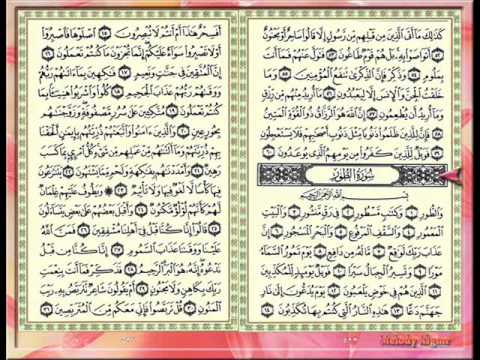 كَذَٰلِكَ مَا أَتَى الَّذِينَ مِن قَبْلِهِم مِّن رَّسُولٍ إِلَّا قَالُوا سَاحِرٌ أَوْ مَجْنُونٌ
٥٢ أَتَوَاصَوْا بِهِ بَلْ هُمْ قَوْمٌ طَاغُونَ ٥٣ فَتَوَلَّ عَنْهُمْ فَمَا أَنتَ
بِمَلُومٍ ٥٤ وَذَكِّرْ فَإِنَّ الذِّكْرَىٰ تَنفَعُ الْمُؤْمِنِينَ ٥٥ وَمَا
خَلَقْتُ الْجِنَّ وَالْإِنسَ إِلَّا لِيَعْبُدُونِ ٥٦ مَا أُرِيدُ مِنْهُم مِّن رِّزْقٍ
وَمَا أُرِيدُ أَن يُطْعِمُونِ ٥٧ إِنَّ اللَّهَ هُوَ الرَّزَّاقُ ذُو الْقُوَّةِ الْمَتِينُ
٥٨ فَإِنَّ لِلَّذِينَ ظَلَمُوا ذَنُوبًا مِّثْلَ ذَنُوبِ أَصْحَابِهِمْ فَلَا يَسْتَعْجِلُونِ
٥٩ فَوَيْلٌ لِّلَّذِينَ كَفَرُوا مِن يَوْمِهِمُ الَّذِي يُوعَدُونَ ٦٠
سُورَةُ الطُّورِ
بِسْمِ اللَّهِ الرَّحْمَٰنِ الرَّحِيمِ
وَالطُّورِ ١ وَكِتَابٍ مَّسْطُورٍ ٢ فِي رَقٍّ مَّنشُورٍ ٣ وَالْبَيْتِ
الْمَعْمُورِ ٤ وَالسَّقْفِ الْمَرْفُوعِ ٥ وَالْبَحْرِ الْمَسْجُورِ ٦ إِنَّ
عَذَابَ رَبِّكَ لَوَاقِعٌ ٧ مَّا لَهُ مِن دَافِعٍ ٨ يَوْمَ تَمُورُ السَّمَاءُ
مَوْرًا ٩ وَتَسِيرُ الْجِبَالُ سَيْرًا ١٠ فَوَيْلٌ يَوْمَئِذٍ لِّلْمُكَذِّبِينَ
١١ الَّذِينَ هُمْ فِي خَوْضٍ يَلْعَبُونَ ١٢ يَوْمَ يُدَعُّونَ إِلَىٰ نَارِ
جَهَنَّمَ دَعًّا ١٣ هَٰذِهِ النَّارُ الَّتِي كُنتُم بِهَا تُكَذِّبُونَ ١٤
أَفَسِحْرٌ هَٰذَا أَمْ أَنتُمْ لَا تُبْصِرُونَ ١٥ اصْلَوْهَا فَاصْبِرُوا
أَوْ لَا تَصْبِرُوا سَوَاءٌ عَلَيْكُمْ إِنَّمَا تُجْزَوْنَ مَا كُنتُمْ تَعْمَلُونَ ١٦
إِنَّ الْمُتَّقِينَ فِي جَنَّاتٍ وَنَعِيمٍ ١٧ فَاكِهِينَ بِمَا آتَاهُمْ رَبُّهُمْ
وَوَقَاهُمْ رَبُّهُمْ عَذَابَ الْجَحِيمِ ١٨ كُلُوا وَاشْرَبُوا هَنِيئًا بِمَا
كُنتُمْ تَعْمَلُونَ ١٩ مُتَّكِئِينَ عَلَىٰ سُرُرٍ مَّصْفُوفَةٍ وَزَوَّجْنَاهُم
بِحُورٍ عِينٍ ٢٠ وَالَّذِينَ آمَنُوا وَاتَّبَعَتْهُمْ ذُرِّيَّتُهُم بِإِيمَانٍ أَلْحَقْنَا
بِهِمْ ذُرِّيَّتَهُمْ وَمَا أَلَتْنَاهُم مِّنْ عَمَلِهِم مِّن شَيْءٍ كُلُّ امْرِئٍ بِمَا كَسَبَ
رَهِينٌ ٢١ وَأَمْدَدْنَاهُم بِفَاكِهَةٍ وَلَحْمٍ مِّمَّا يَشْتَهُونَ ٢٢ يَتَنَازَعُونَ
فِيهَا كَأْسًا لَّا لَغْوٌ فِيهَا وَلَا تَأْثِيمٌ ٢٣ وَيَطُوفُ عَلَيْهِمْ غِلْمَانٌ
لَّهُمْ كَأَنَّهُمْ لُؤْلُؤٌ مَّكْنُونٌ ٢٤ وَأَقْبَلَ بَعْضُهُمْ عَلَىٰ بَعْضٍ يَتَسَاءَلُونَ
٢٥ قَالُوا إِنَّا كُنَّا قَبْلُ فِي أَهْلِنَا مُشْفِقِينَ ٢٦ فَمَنَّ اللَّهُ
عَلَيْنَا وَوَقَانَا عَذَابَ السَّمُومِ ٢٧ إِنَّا كُنَّا مِن قَبْلُ
نَدْعُوهُ إِنَّهُ هُوَ الْبَرُّ الرَّحِيمُ ٢٨ فَذَكِّرْ فَمَا أَنتَ بِنِعْمَتِ
رَبِّكَ بِكَاهِنٍ وَلَا مَجْنُونٍ ٢٩ أَمْ يَقُولُونَ شَاعِرٌ نَّتَرَبَّصُ بِهِ رَيْبَ
الْمَنُونِ ٣٠ قُلْ تَرَبَّصُوا فَإِنِّي مَعَكُم مِّنَ الْمُتَرَبِّصِينَ ٣١